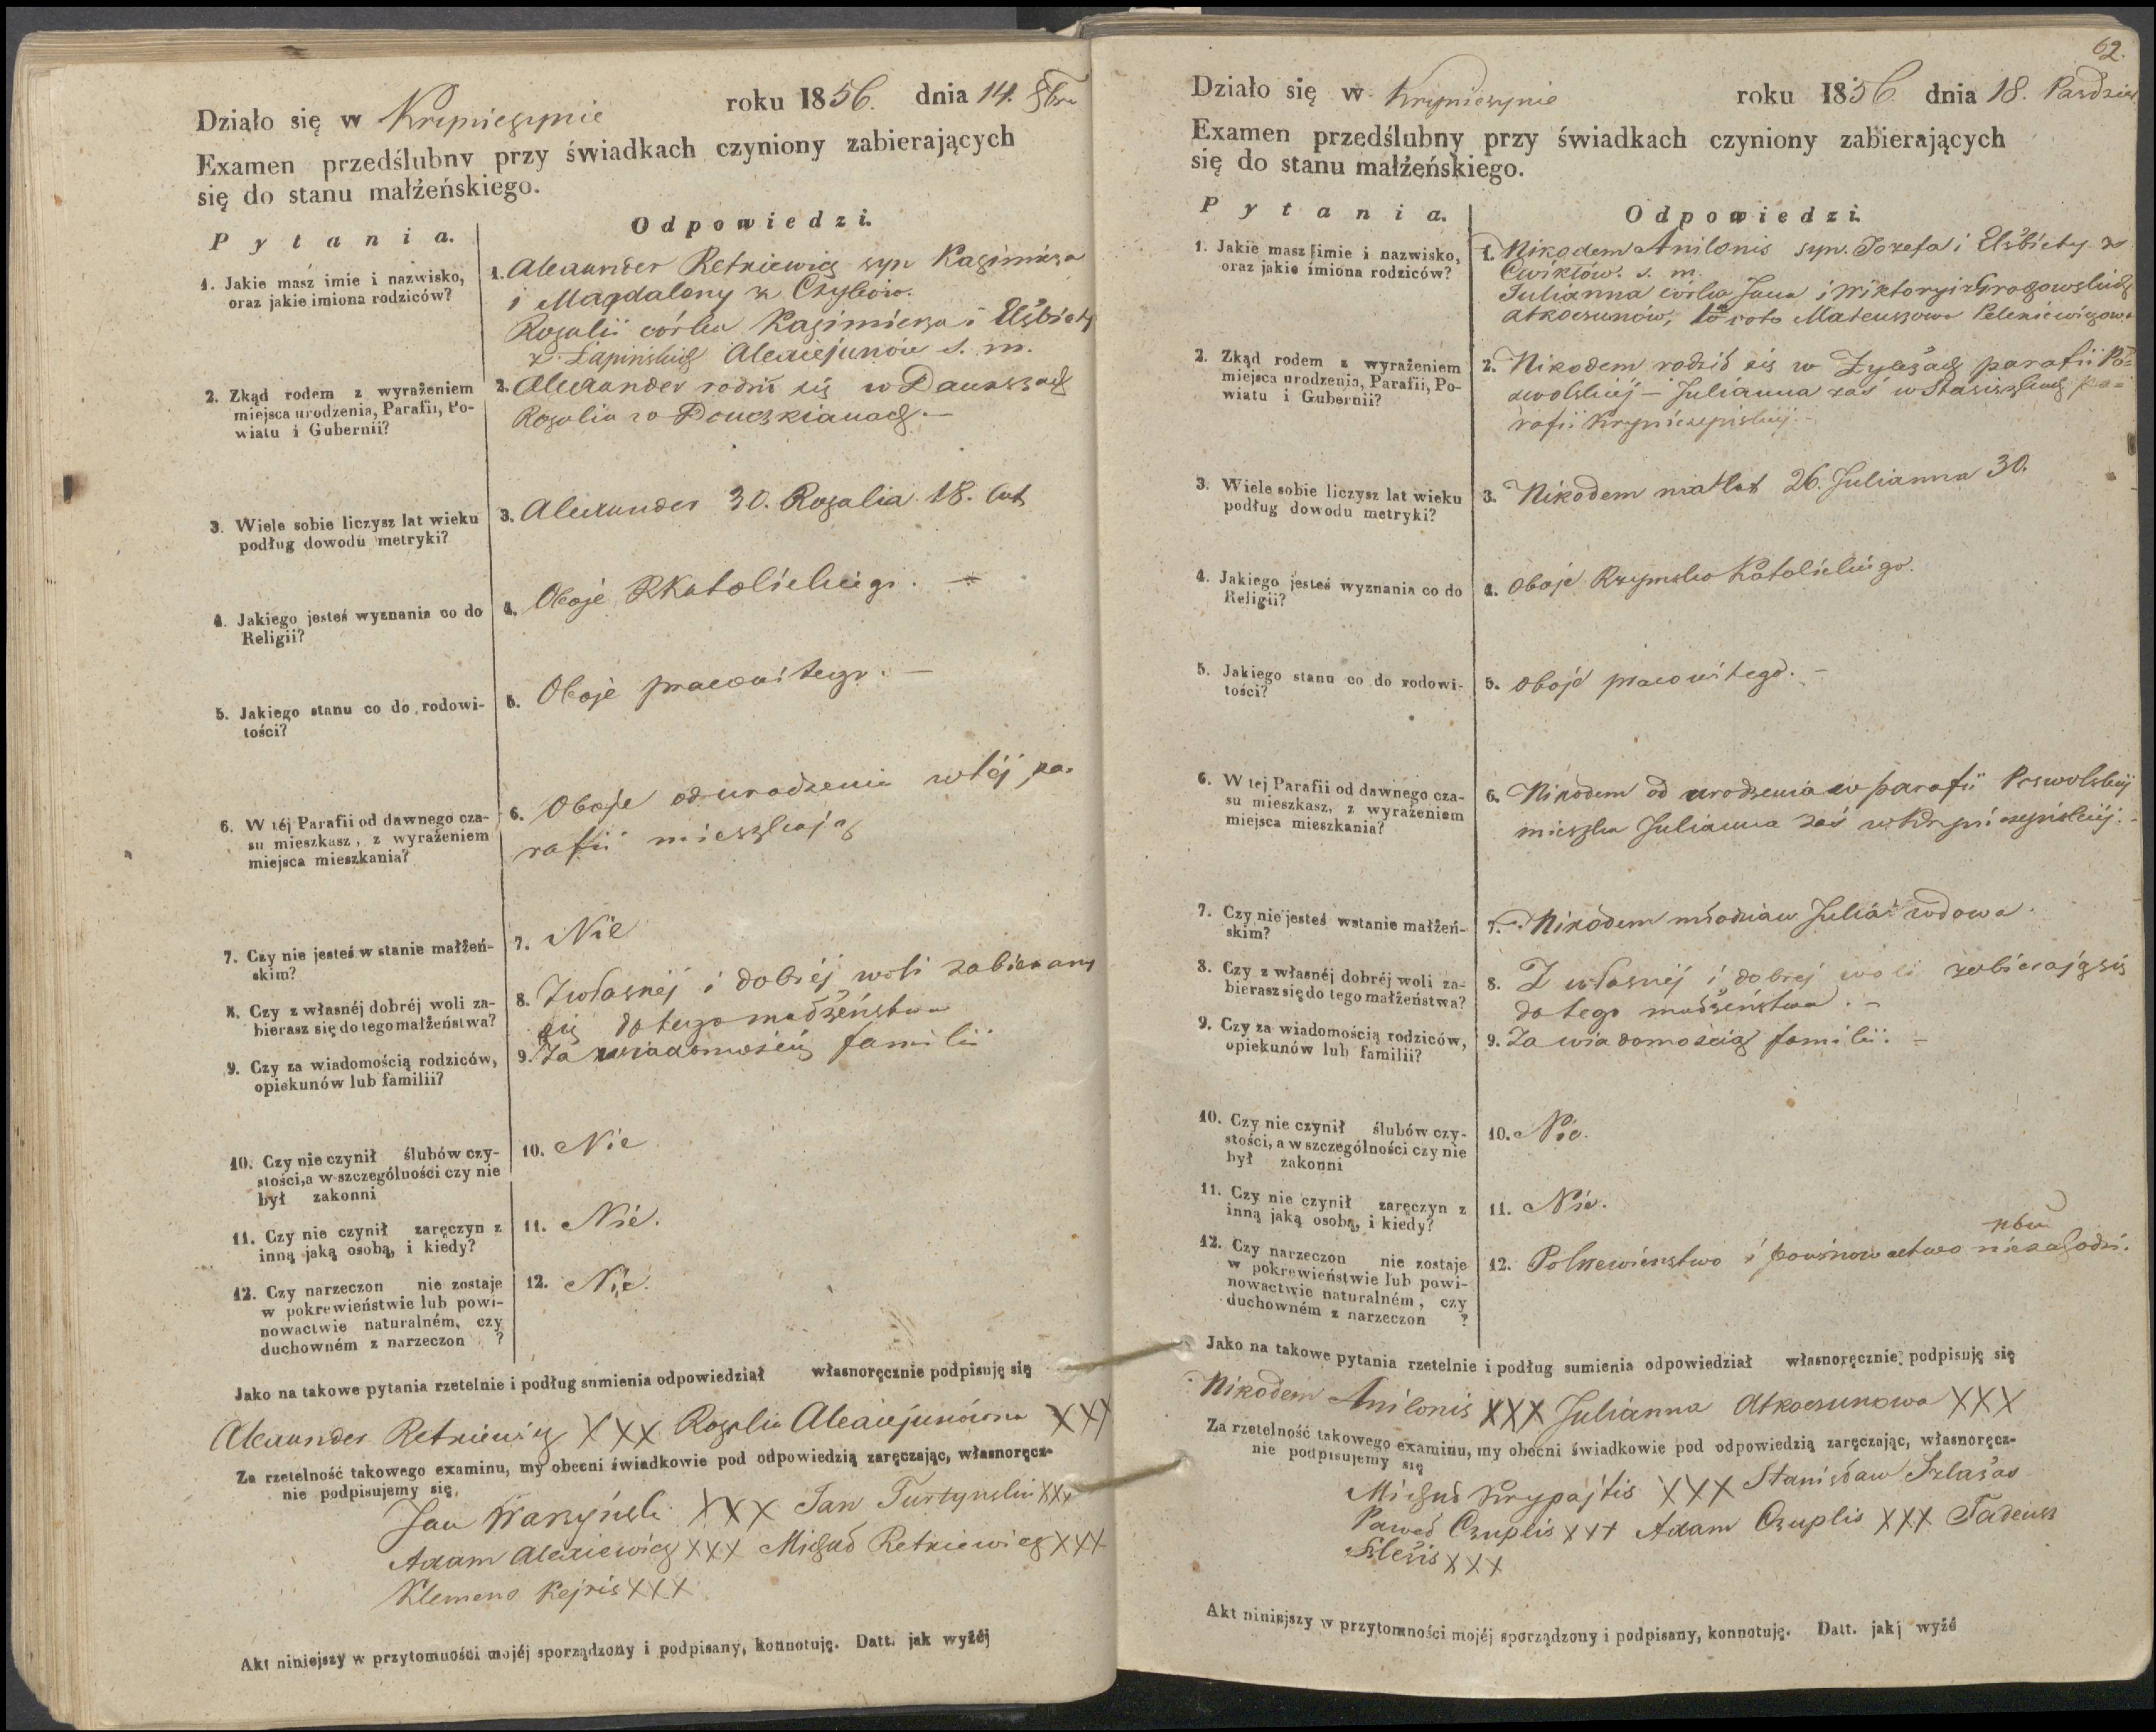 Działo się w Krypniczynie roku 1856. dnia 14. 8bra
Examen przedślubny przy świadkach czyniony zabierających
się do stanu małżeńskiego.
Pytania. Odpowiedzi.
1. Jakie masz imie i nazwisko,
oraz jakie imiona rodziców?
1. Alexander Retkiewicz syn Kazimirza
i Magdaleny z Czyżów.
Rozalii córka Kazimierza i Elżbiety
z Łapińskich Alexiejunów s. m.
2. Zkąd rodem z wyrażeniem
miejsca urodzenia, Parafii, Po-
wiatu i Gubernii?
2. Alexander rodził się w
Rozalia w
3. Wiele sobie liczysz lat wieku
podług dowodu metryki?
3. Alexander 30. Rozalia 18. lat
4. Jakiego jesteś wyznania co do
Religii?
4. Oboje RKatolickiego. —
5. Jakiego stanu co do rodowi-
tości?
5. Oboje pracowitego. —
6. W téj Parafii od dawnego cza-
su mieszkasz, z wyrażeniem
miejsca mieszkania?
6. Oboje od urodzenia w téj pa-
rafii mieszkają
7. Czy nie jesteś w stanie małżeń-
skim?
7. Nie
8. Czy z własnéj dobréj woli za-
bierasz się do tego małżeństwa?
8. Z własnéj i dobréj woli zabieramy
się do tego małżeństwa
9. Czy za wiadomością rodziców,
opiekunów lub familii?
9. Za wiadomością familii
10. Czy nie czynił ślubów czy-
stości, a w szczególności czy nie
był zakonni
10. Nie
11. Czy nie czynił zaręczyn z
inną jaką osobą, i kiedy?
11. Nie.
12. Czy narzeczon nie zostaje
w pokrewieństwie lub powi-
nowactwie naturalném, czy
duchowném z narzeczon ?
12. Nie.
Jako na takowe pytania rzetelnie i podług sumienia odpowiedział własnoręcznie podpisuję się
Alexander Retkiewicz XXX Rozalia Alexiejunówna XXX
Za rzetelność takowego examinu, my obecni świadkowie pod odpowiedzią zaręczając, własnoręcz-
nie podpisujemy się,
Jan Warzyński XXX Jan Turtynski XXX
Adam Alexiewicz XXX Michał Retkiewicz XXX
Klemens Kejris XXX
Akt niniejszy w przytomności mojéj sporządzony i podpisany, konnotuję. Datt. jak wyźéj
62.
Działo się w Krypniczynie roku 1856 dnia 18. Pazdzier
Examen przedślubny przy świadkach czyniony zabierających
się do stanu małżeńskiego.
Pytania. Odpowiedzi.
1. Jakie masz imie i nazwisko,
oraz jakie imiona rodziców?
1. Nikodem Anilonis syn Jozefa i Elżbiety z
Cwikłów. s. m.
Julianna córka Jana i Wiktoryi z Grogowskich
Atkoczunów, 1o voto Mateuszowa
2. Zkąd rodem z wyrażeniem
miejsca urodzenia, Parafii, Po-
wiatu i Gubernii?
2. Nikodem rodził się w parafii Po-
zwolskiéj — Julianna zaś w Stasiszkach pa-
rafii Krypniczyńskiéj. —
3. Wiele sobie liczysz lat wieku
podług dowodu metryki?
3. Nikodem ma lat 26. Julianna 30.
4. Jakiego jesteś wyznania co do
Religii?
4. Oboje Rzymsko Katolickiego.
5. Jakiego stanu co do rodowi-
tości?
5. Oboje pracowitego. —
6. W tej Parafii od dawnego cza-
su mieszkasz, z wyrażeniem
miejsca mieszkania?
6. Nikodem od urodzenia w parafii Pozwolskiéj
mieszka Julianna zaś w Krypniczyńskiéj. —
7. Czy nie jesteś wstanie małżeń-
skim?
7. Nikodem młodzian Julia: wdowa.
8. Czy z własnéj dobréj woli za-
bierasz się do tego małżeństwa?
8. Z własnéj i dobréj woli zabierają się
do tego małżeństwa. —
9. Czy za wiadomością rodziców,
opiekunów lub familii?
9. Za wiadomością familii. —
10. Czy nie czynił ślubów czy-
stości, a w szczególności czy nie
był zakonni
10. Nie.
11. Czy nie czynił zaręczyn z
inną jaką osobą, i kiedy?
11. Nie.
12. Czy narzeczon nie zostaje
w pokrewieństwie lub powi-
nowactwie naturalném, czy
duchowném z narzeczon ?
12. Pokrewieństwo i powinowactwo niezachodzi.
Jako na takowe pytania rzetelnie i podług sumienia odpowiedział własnoręcznie podpisuję się
Nikodem Anilonis XXX Julianna Atkoczunowa XXX
Za rzetelność takowego examinu, my obecni świadkowie pod odpowiedzią zaręczając, własnoręcz-
nie podpisujemy się
Michał Krypajtis XXX Stanisław Szlażas
Paweł Czuplis XXX Adam Czuplis XXX Tadeusz
Szleżis XXX
Akt niniejszy w przytomności mojéj sporządzony i podpisany, konnotuję. Datt. jakj wyźé